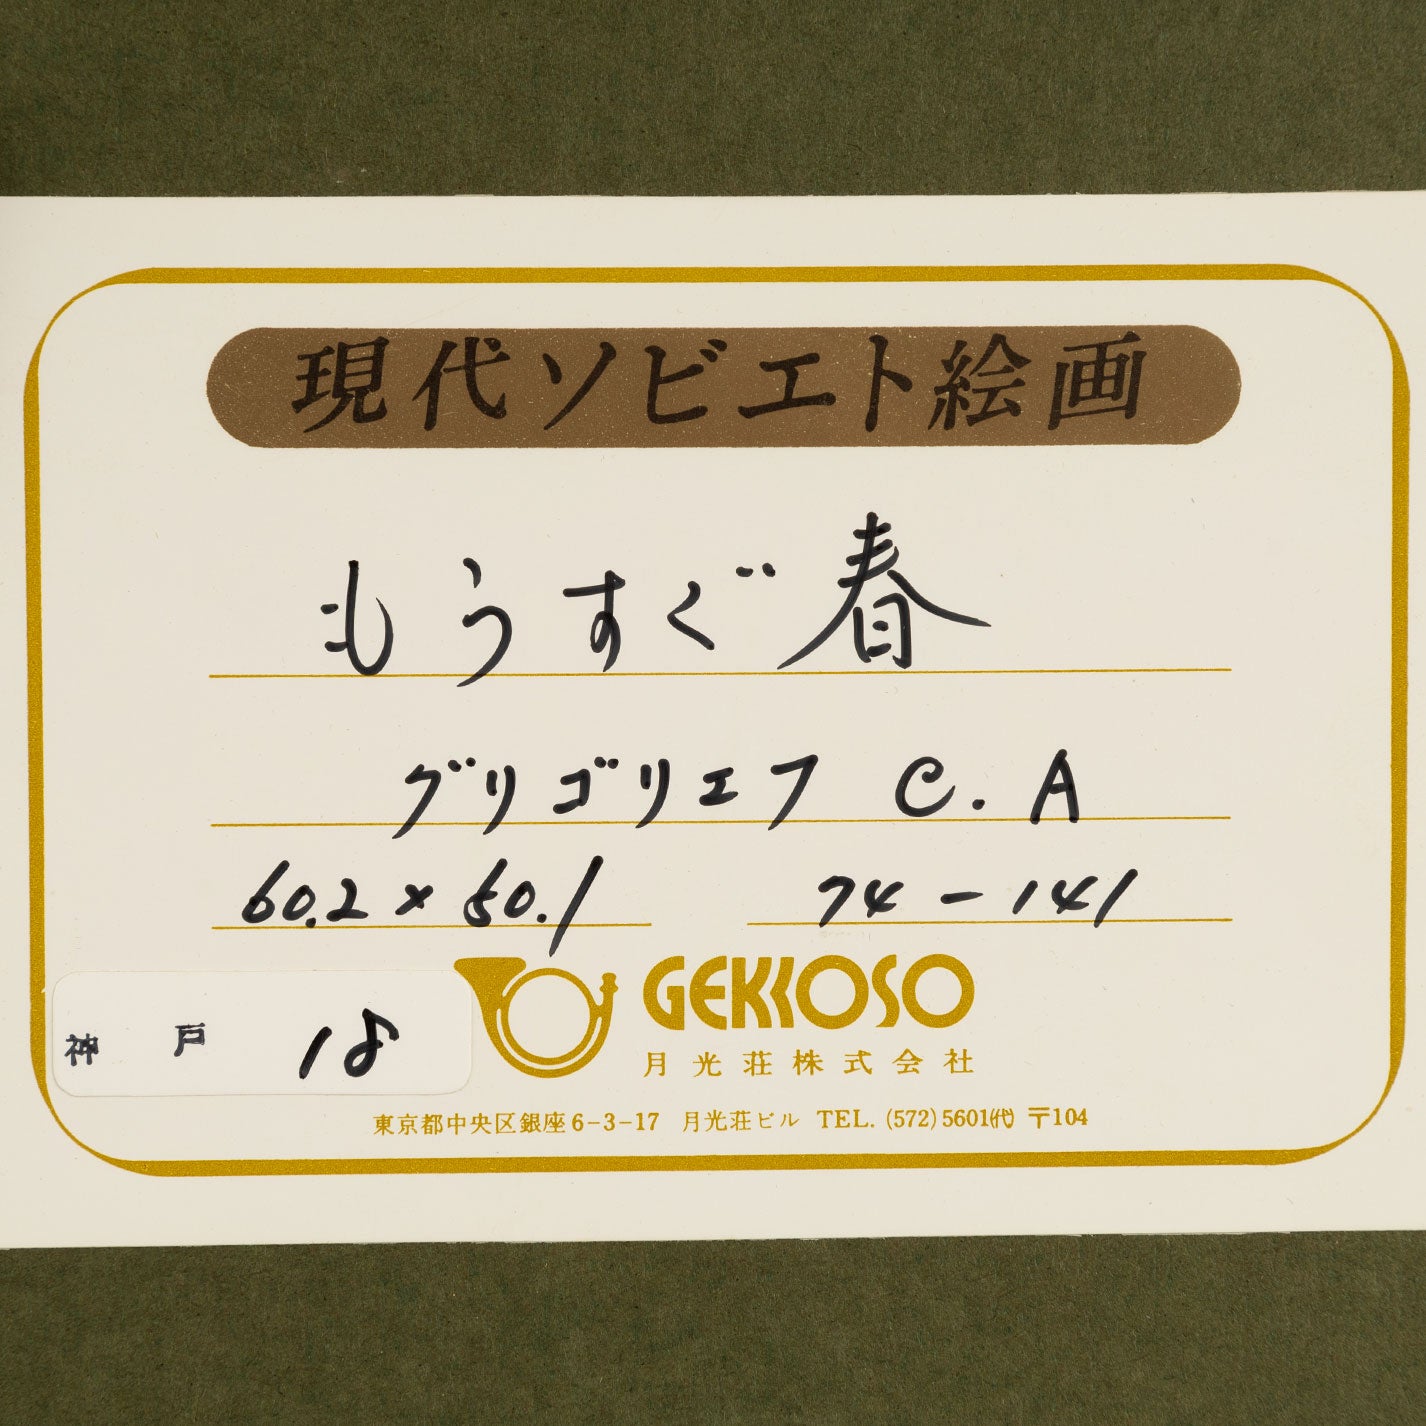 現代ソビエト絵画
もうすぐ春
グリゴリエフ C.A
60.2×50.1 74-141
神戸 18
GEKKOSO
月光荘株式会社
東京都中央区銀座6-3-17 月光荘ビル TEL.(572)5601㈹ 〒104